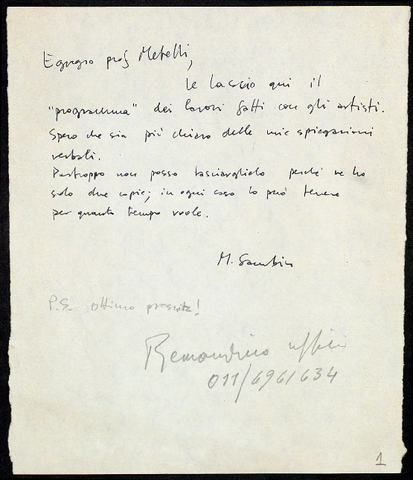 Egregio prof Metelli,
Le lascio qui il
"programma" dei lavori fatti con gli artisti.
Spero che sia più chiaro delle mie spiegazioni
verbali.
Purtroppo non posso lasciarglielo perché ne ho
solo due copie; in ogni caso lo può tenere
per quanto tempo vuole.
M. Sambin
P.S. ottimo
011/6961634
1